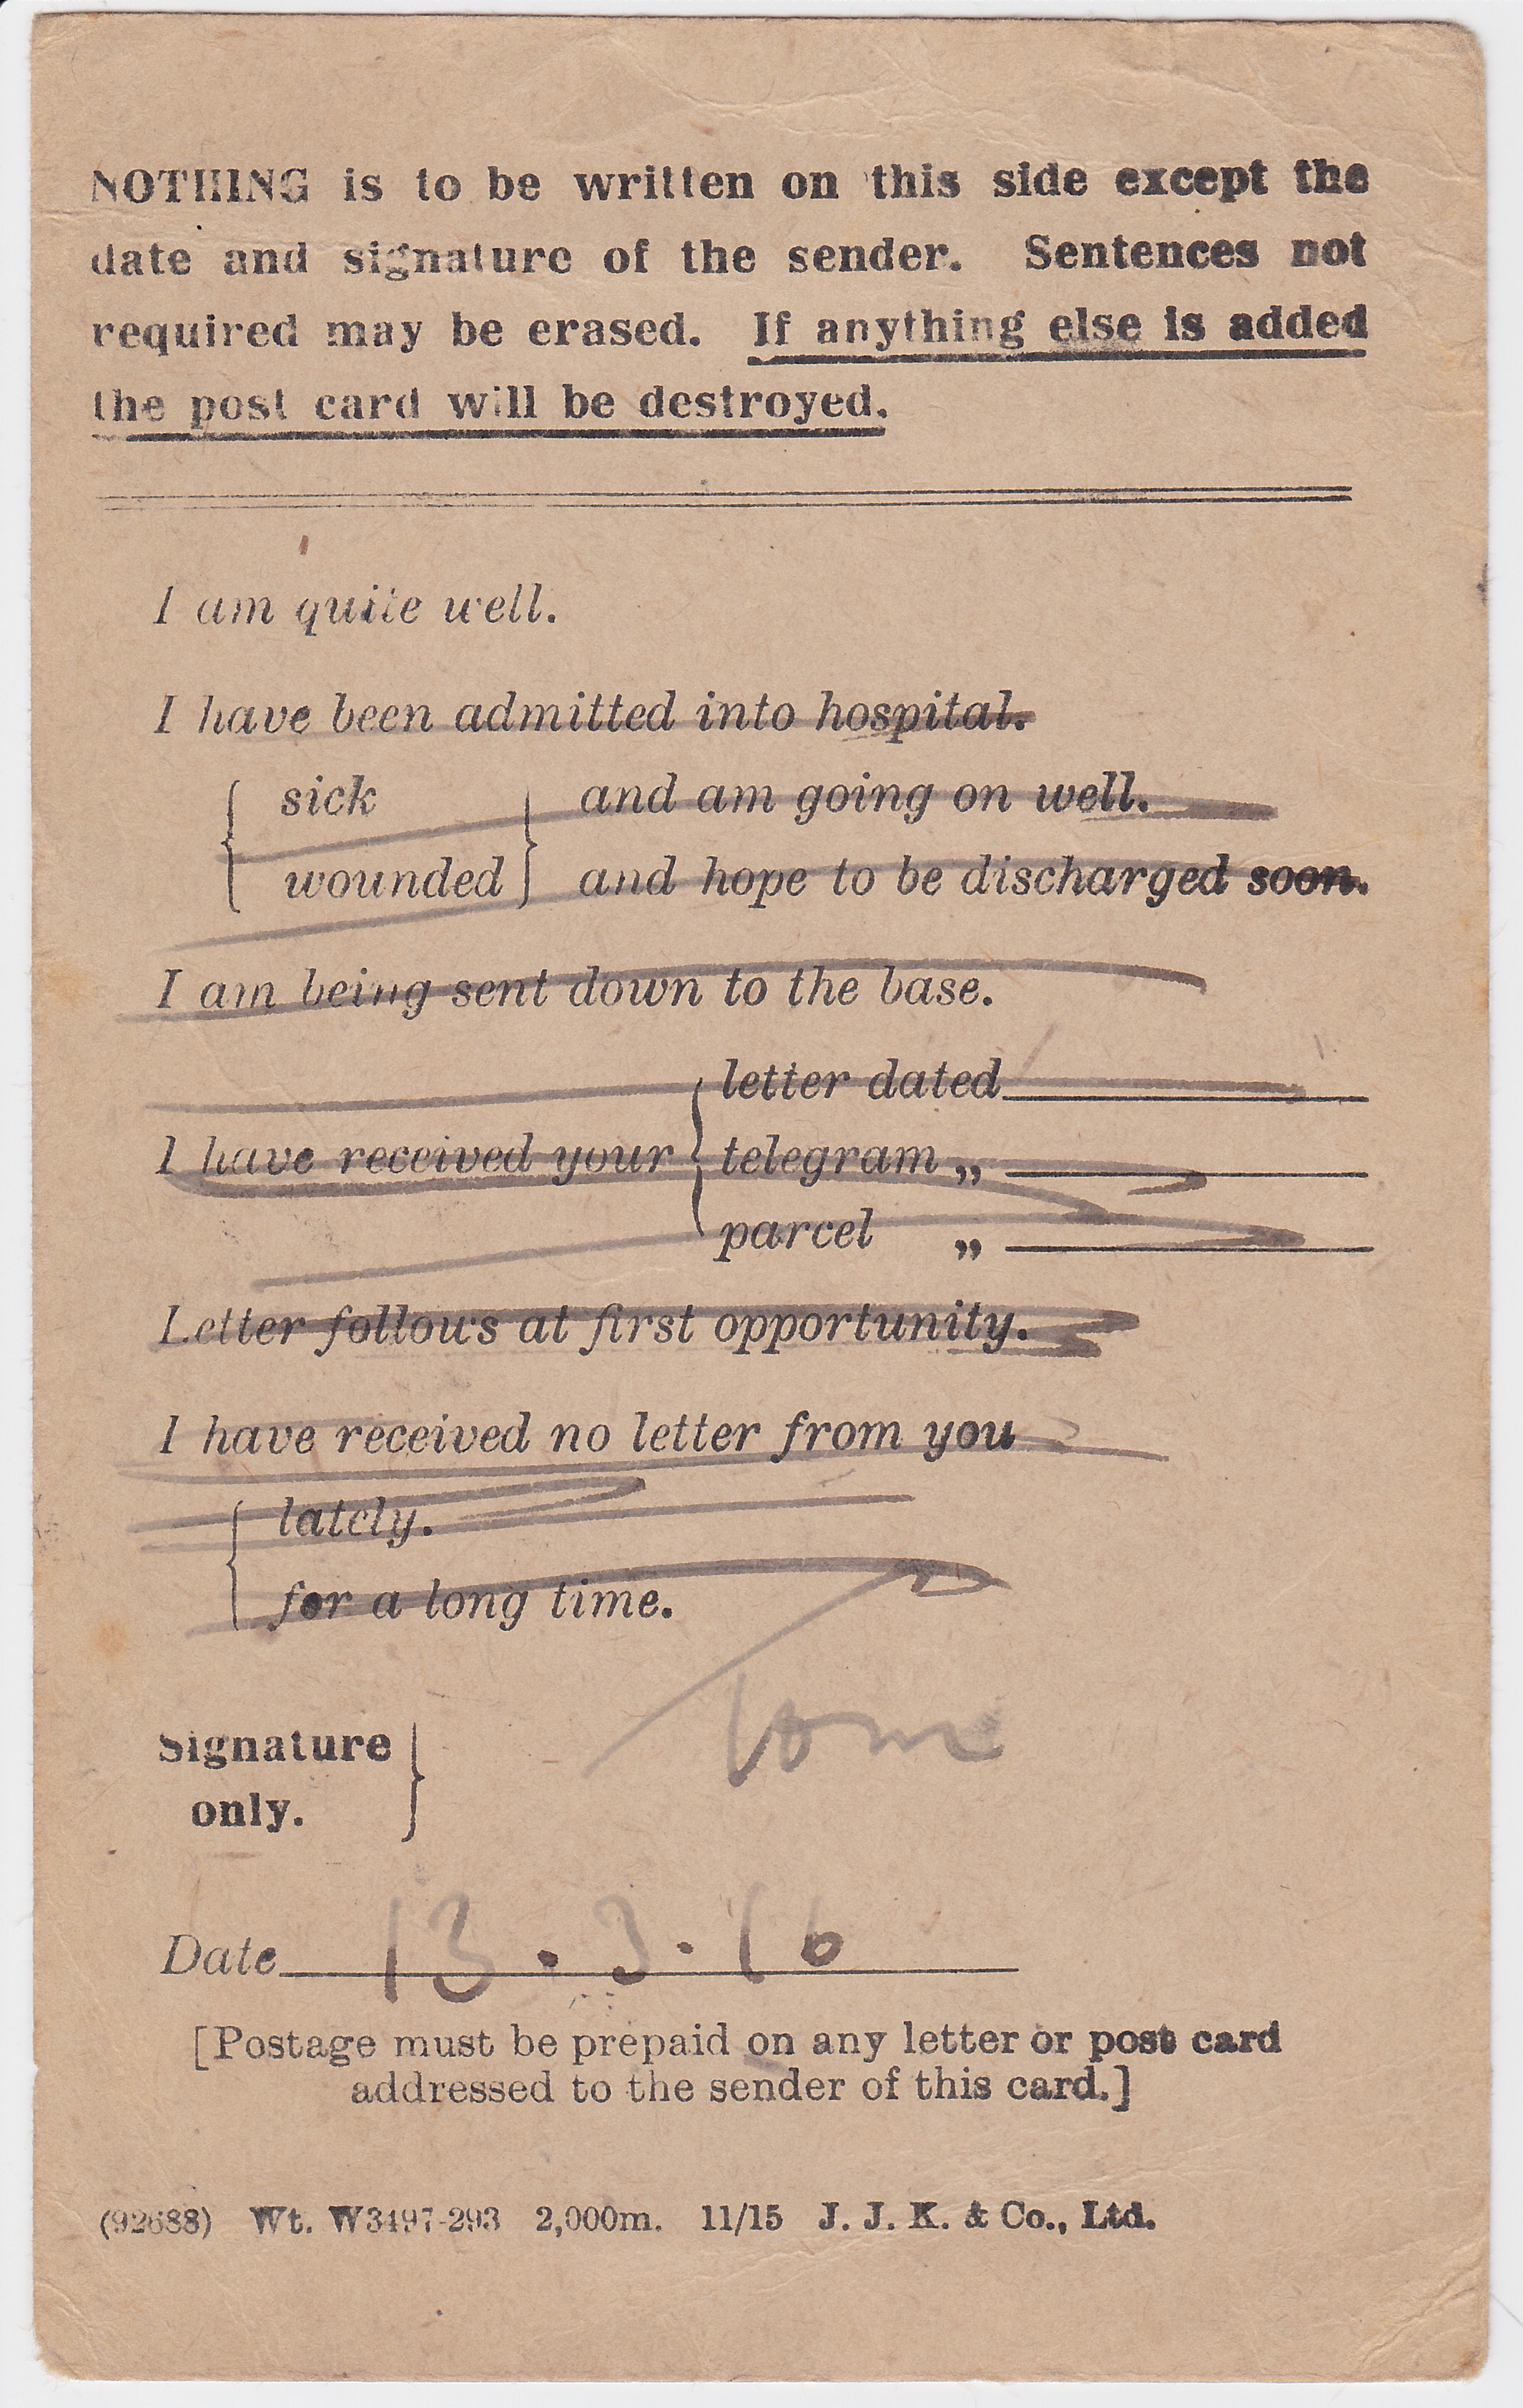 NOTHING is to be written on this side except the
date and signature of the sender. Sentences not
required may be erased. If anything else is added
the post card will be destroyed.
I am quite well.
I have been admitted into hospital.
sick and am going on well.
wounded and hope to be discharged soon.
I am being sent down to the base.
letter dated
I have received your telegram „
parcel „
Letter follows at first opportunity.
I have received no letter from you
lately.
for a long time.
Signature
only.
Date 13.3.16
[Postage must be prepaid on any letter or post card
addressed to the sender of this card.]
(92688) Wt. W3497-293 2,000m. 11/15 J. J. K. & Co., Ltd.